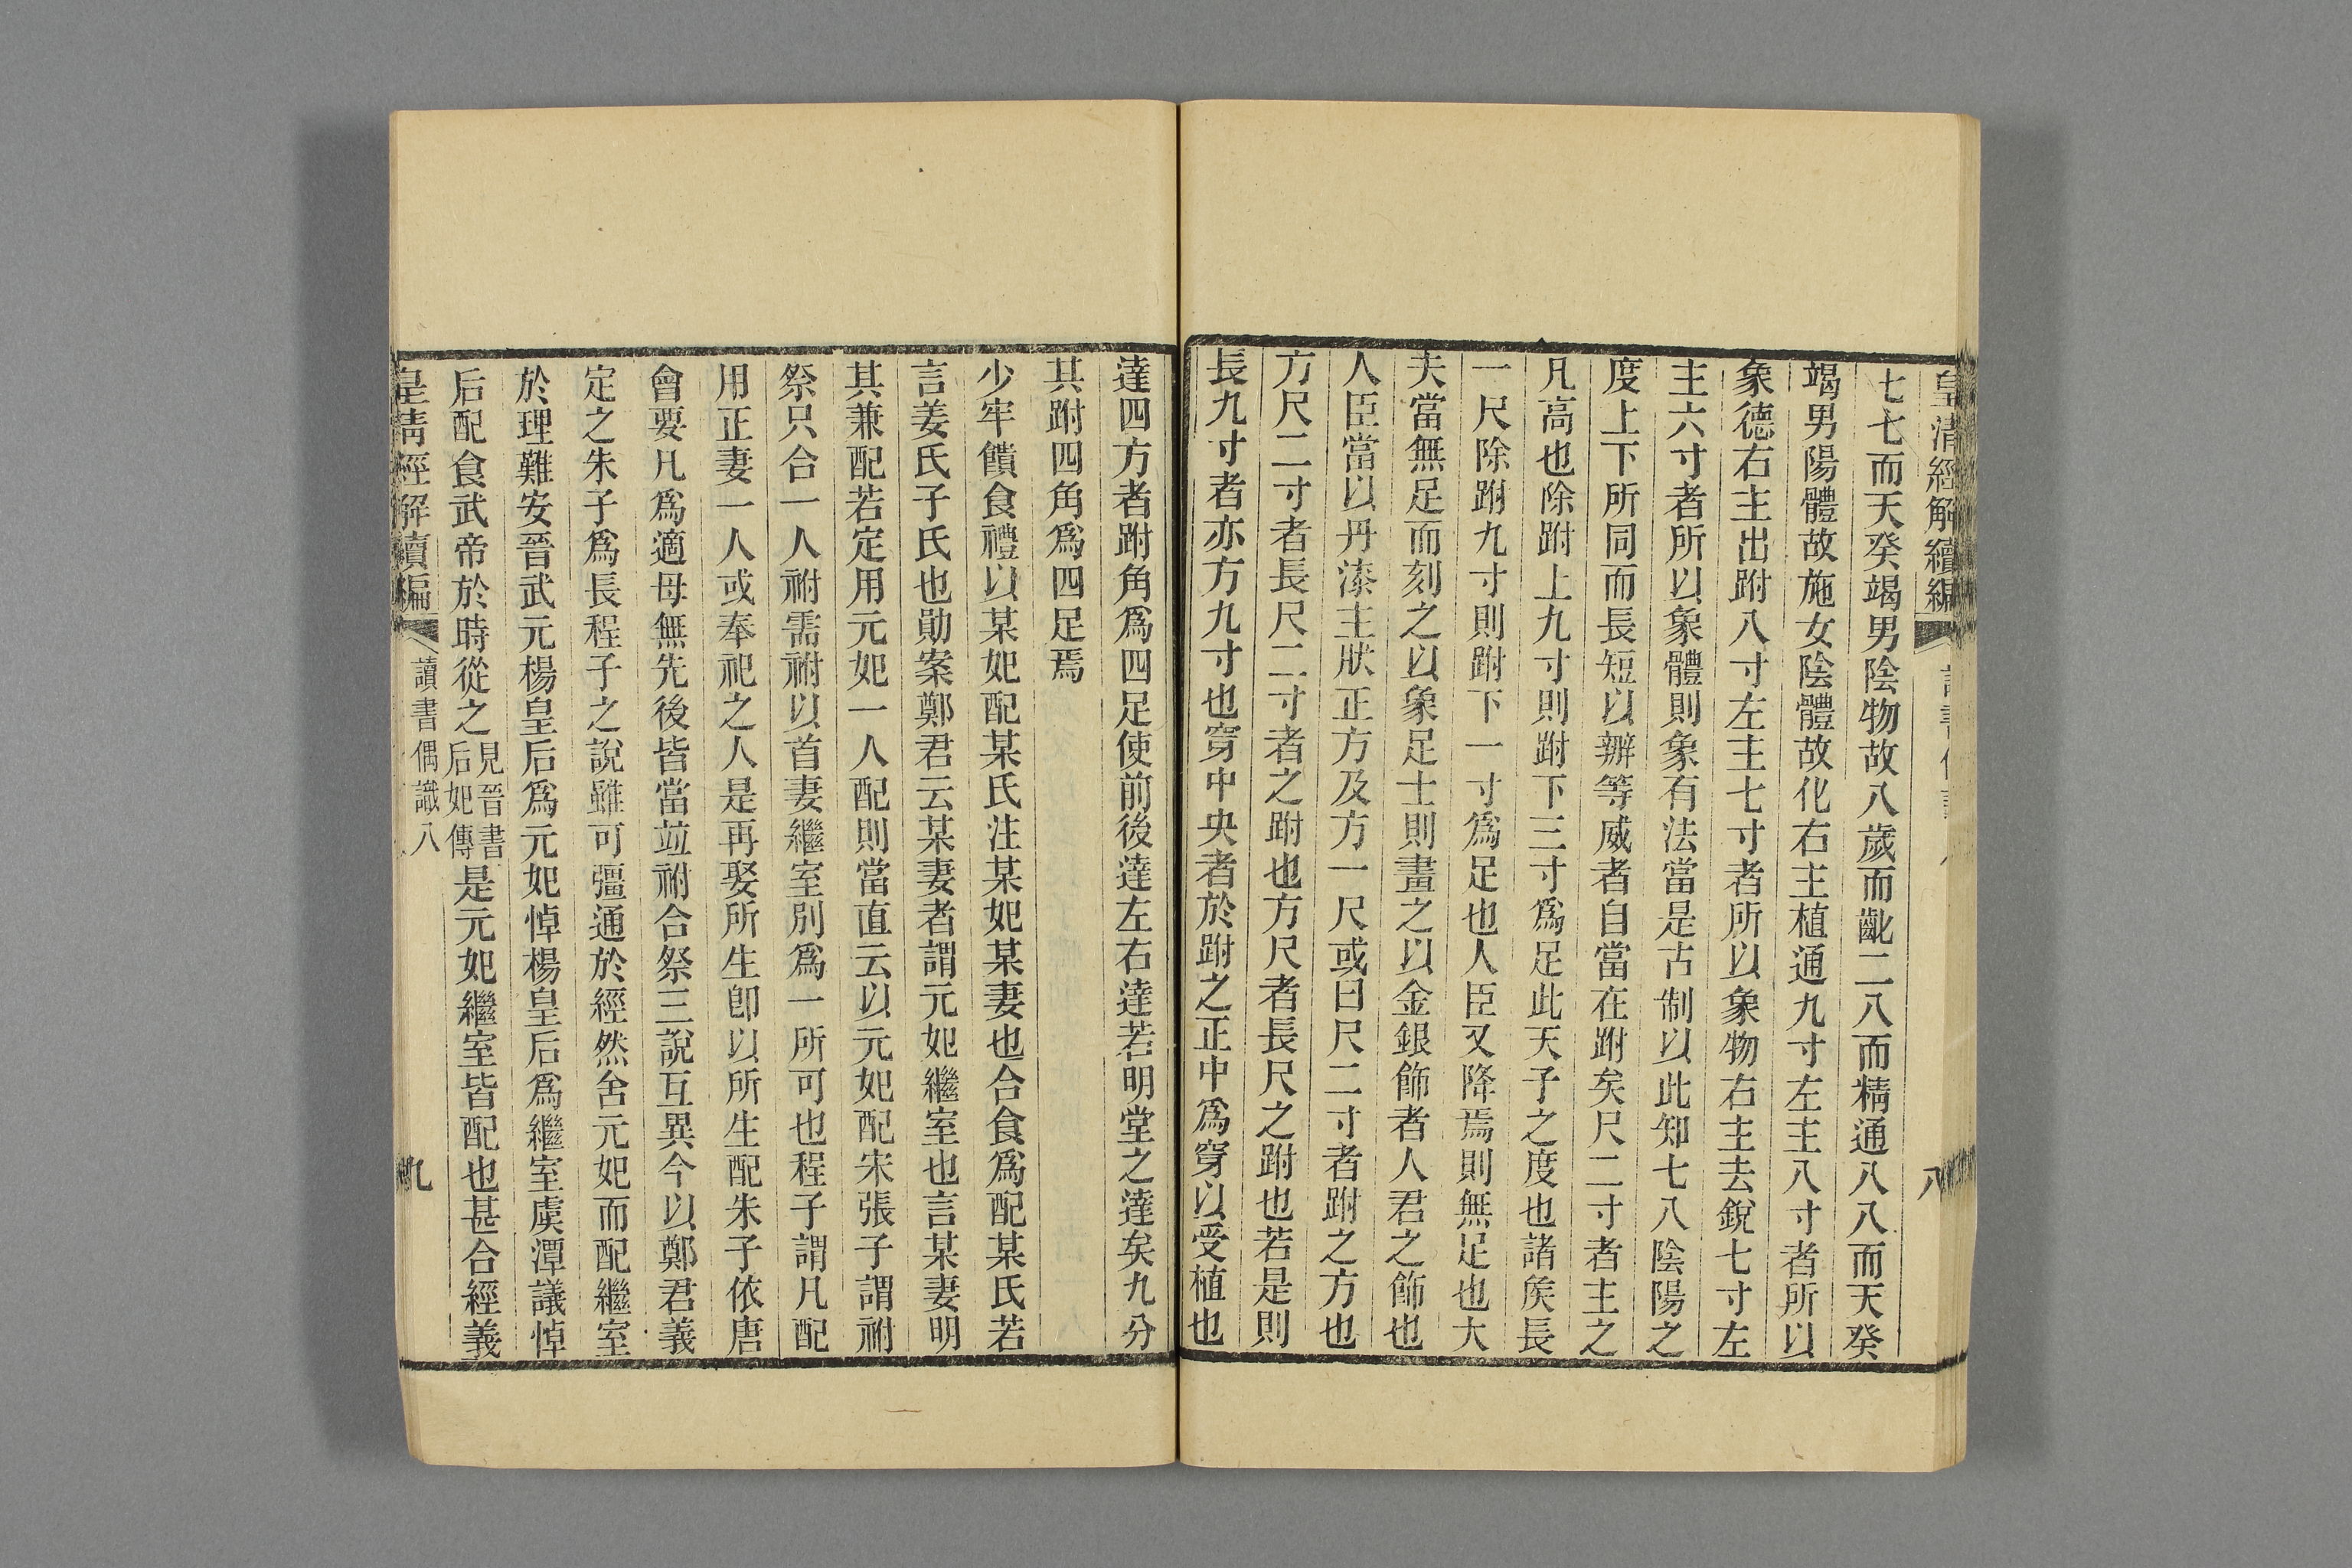 皇清經解續編 八
七七而天癸竭男陰物故八歲而齔二八而精通八八而天癸
竭男陽體故施女陰體故化右主植通九寸左主八寸者所以
象德右主出跗八寸左主七寸者所以象物右主去銳七寸左
主六寸者所以象體則象有法當是古制以此知七八陰陽之
度上下所同而長短以辧等威者自當在跗矣尺二寸者主之
凡高也除跗上九寸則跗下三寸爲足此天子之度也諸矦長
一尺除跗九寸則跗下一寸爲足也人臣又降焉則無足也大
夫當無足而刻之以象足士則畫之以金銀飾者人君之飾也
人臣當以丹漆主狀正方及方一尺或曰尺二寸者跗之方也
方尺二寸者長尺二寸者之跗也方尺者長尺之跗也若是則
長九寸者亦方九寸也穿中央者於跗之正中爲穿以受植也
達四方者跗角爲四足使前後達左右達若明堂之達矣九分
其跗四角爲四足焉
少牢饋食禮以某妃配某氏注某妃某妻也合食爲配某氏若
言姜氏子氏也勛案鄭君云某妻者謂元妃繼室也言某妻明
其兼配若定用元妃一人配則當直云以元妃配宋張子謂祔
祭只合一人祔需祔以首妻繼室別爲一所可也程子謂凡配
用正妻一人或奉祀之人是再娶所生卽以所生配朱子依唐
會要凡爲適母無先後皆當竝祔合祭三說互異今以鄭君義
定之朱子爲長程子之說雖可彊通於經然舍元妃而配繼室
於理難安晉武元楊皇后爲元妃悼楊皇后爲繼室虞潭議悼
后配食武帝於時從之見晉書后妃傳是元妃繼室皆配也甚合經義
皇清經解續編 讀書偶識八 九